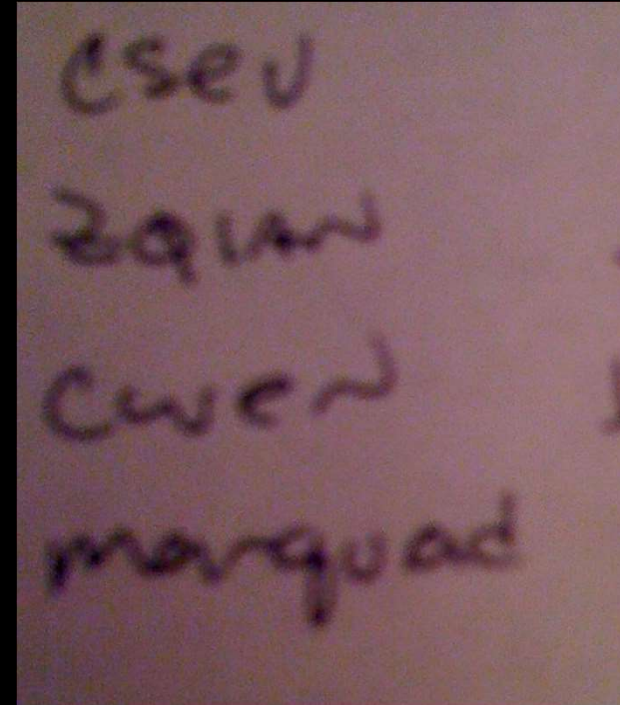 csev
zqian
cwen
marquad